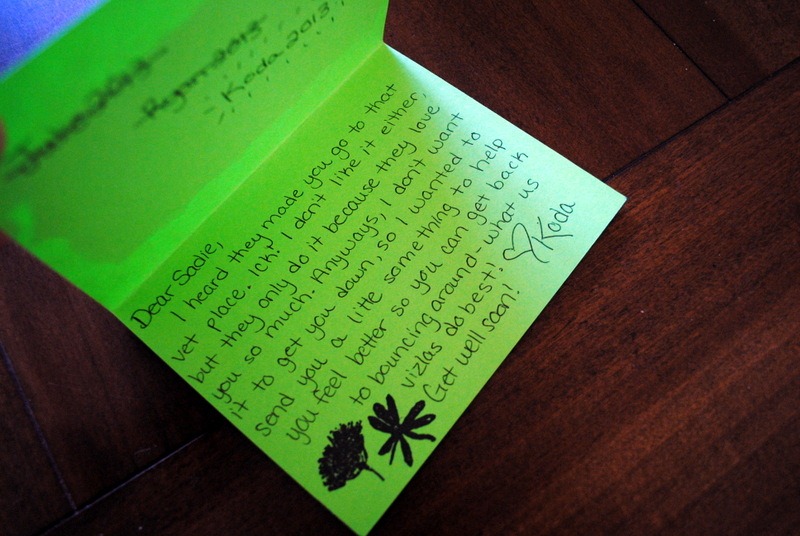 Koda 2013
Dear Sadie,
I heard they made you go to that
vet place. Ick! I don't like it either,
but they only do it because they love
you so much. Anyways, I don't want
it to get you down, so I wanted to
send you a litte something to help
you feel better so you can get back
to bouncing around - what us
vizlas do best!
Get well soon!
♡Koda